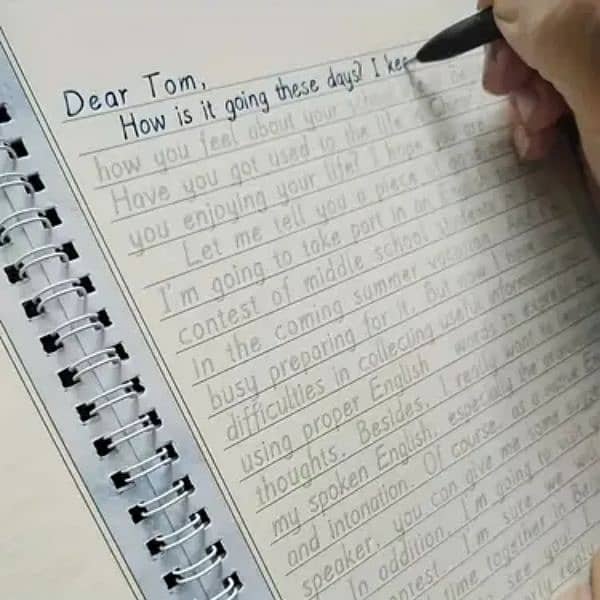 Dear Tom,
How is it going these days? I kee
how you feel about your school
Have you got used to the life in China
you enjoying your life? I hope you are
Let me tell you a piece of good
I'm going to take part in an English
contest of middle school students
in the coming summer vacation. And I'm
busy preparing for it. But now I have some
difficulties in collecting useful information
using proper English words to express my
thoughts. Besides, I really want to
my spoken English, especially the
and intonation. Of course, as a native
speaker, you can give me some
In addition, I'm going to visit
contest. I'm sure we will
time together in
to see you!
early reply